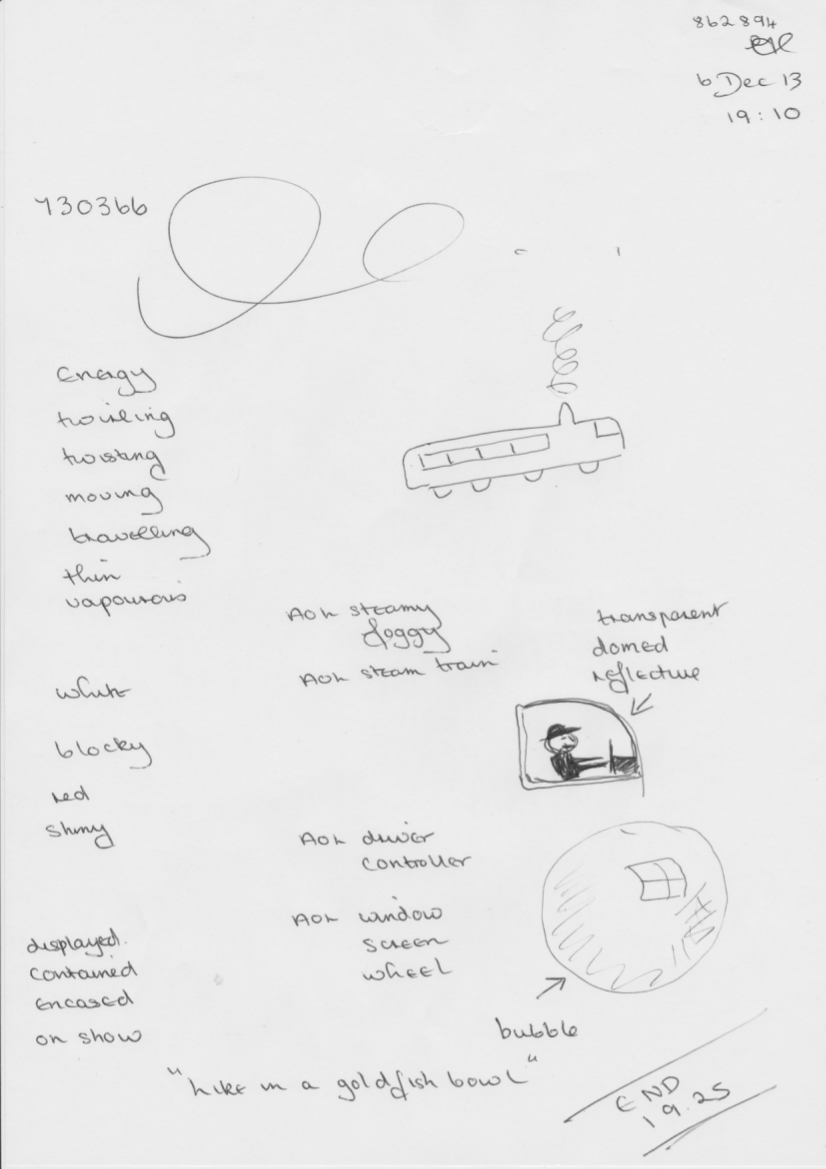 862894
6 Dec 13
19:10
730366
Energy
twirling
twisting
moving
travelling
thin
vapourous
AOL steamy
foggy
AOL steam train
transparent
domed
reflective
white
blocky
red
shiny
AOL driver
controller
AOL window
screen
wheel
displayed.
contained
encased
on show
bubble
"Like in a goldfish bowl"
END
19.25